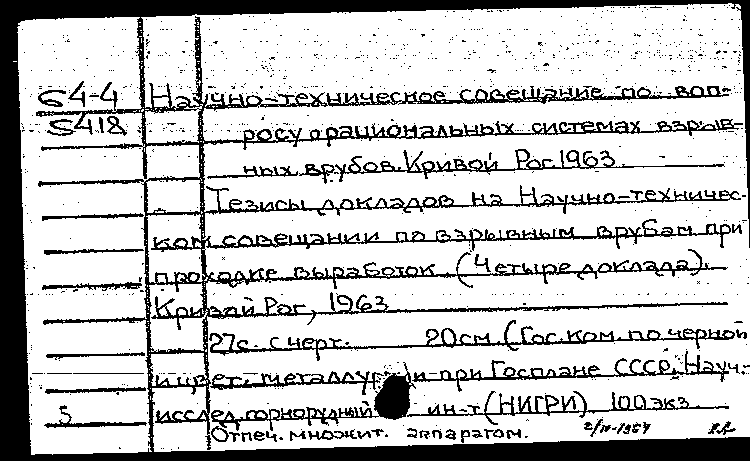 64-4 Научно-техническое совещание по воп-
5418 росу о рациональных системах взрыв-
ных врубов. Кривой Рог. 1963.
Тезисы докладов на Научно-техничес-
ком совещании по взрывным врубам при
проходке выработок. (Четыре доклада).
Кривой Рог, 1963
27с. с черт. 20см. (Гос. ком. по черной
и цвет. металлургии при Госплане СССР. Науч.-
5 исслед. горнорудный ин-т (НИГРИ) 100 экз.
Отпеч. множит. аппаратом.